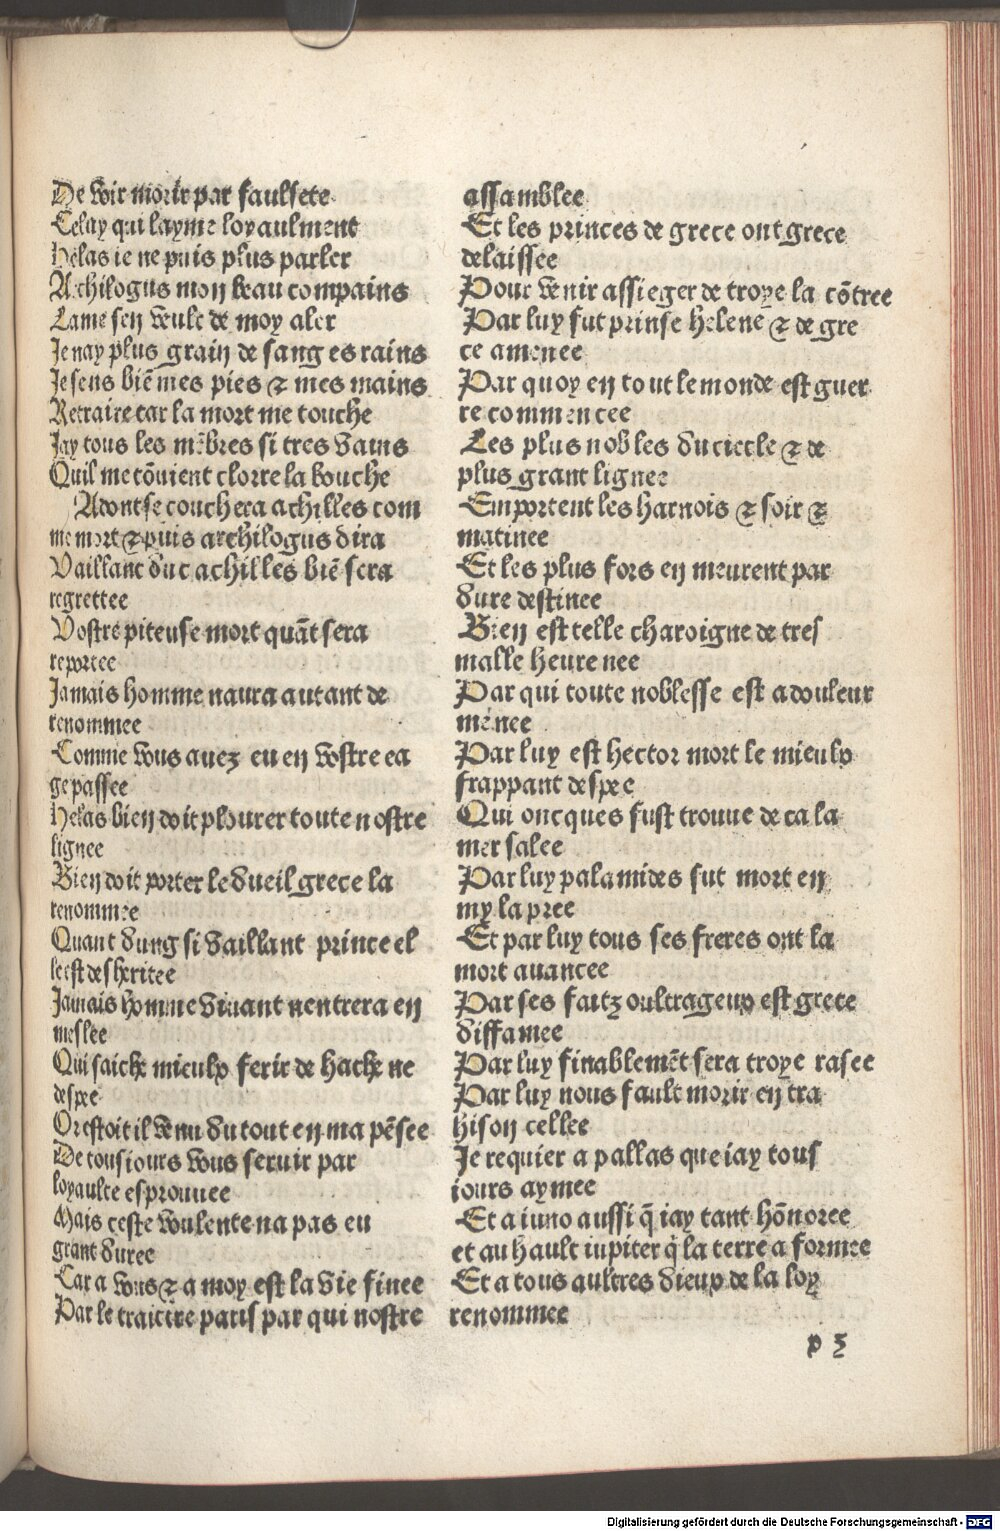 De voir morir par faulsete
Celuy qui layme loyaulment
Helas ie ne puis plus parler
Archilogus mon beau compains
Lame sen veult de moy aler
Je nay plus grain de sang es rains
Je sens biē mes pies & mes mains
Retraire car la mort me touche
Jay tous les mēbres si tres vains
Quil me cōuient clorre la bouche
Adont se couchera achilles com
me mort & puis archilogus dira
Vaillant duc achilles biē sera
regrettee
Vostre piteuse mort quāt sera
reportee
Jamais homme naura autant de
renommee
Comme vous auez eu en vostre ea
ge passee
Helas bien doit plourer toute nostre
lignee
Bien doit porter le dueil grece la
renommee
Quant dung si vaillant prince el
le est desheritee
Jamais homme viuant nentrera en
meslee
Qui saiche mieulx ferir de hache ne
despee
Or estoit il venu du tout en ma pēsee
De tousiours vous seruir par
loyaulte esprouuee
Mais ceste voulente na pas eu
grant duree
Car a vous & a moy est la vie finee
Par le traictre paris par qui nostre
assamblee
Et les princes de grece ont grece
delaissee
Pour venir assieger de troye la cōtree
Par luy fut prinse helene & de gre
ce amenee
Par quoy en tout le monde est guer
re commencee
Les plus nobles du ciecle & de
plus grant lignee
Emportent les harnois & soir &
matinee
Et les plus fors en meurent par
dure destinee
Bien est telle charoigne de tres
malle heure nee
Par qui toute noblesse est a douleur
menee
Par luy est hector mort le mieulx
frappant despee
Qui oncques fust trouue de ca la
mer salee
Par luy palamides fut mort en
my la pree
Et par luy tous ses freres ont la
mort auancee
Par ses faitz oultrageux est grece
diffamee
Par luy finablemēt sera troye rasee
Par luy nous fault morir en tra
hison cellee
Je requier a pallas que iay tous
iours aymee
Et a iuno aussi q̄ iay tant hōnoree
et au hault iupiter q̄ la terre a formee
Et a tous aultres dieux de la loy
renommee
p 5
Digitalisierung gefördert durch die Deutsche Forschungsgemeinschaft - DFG